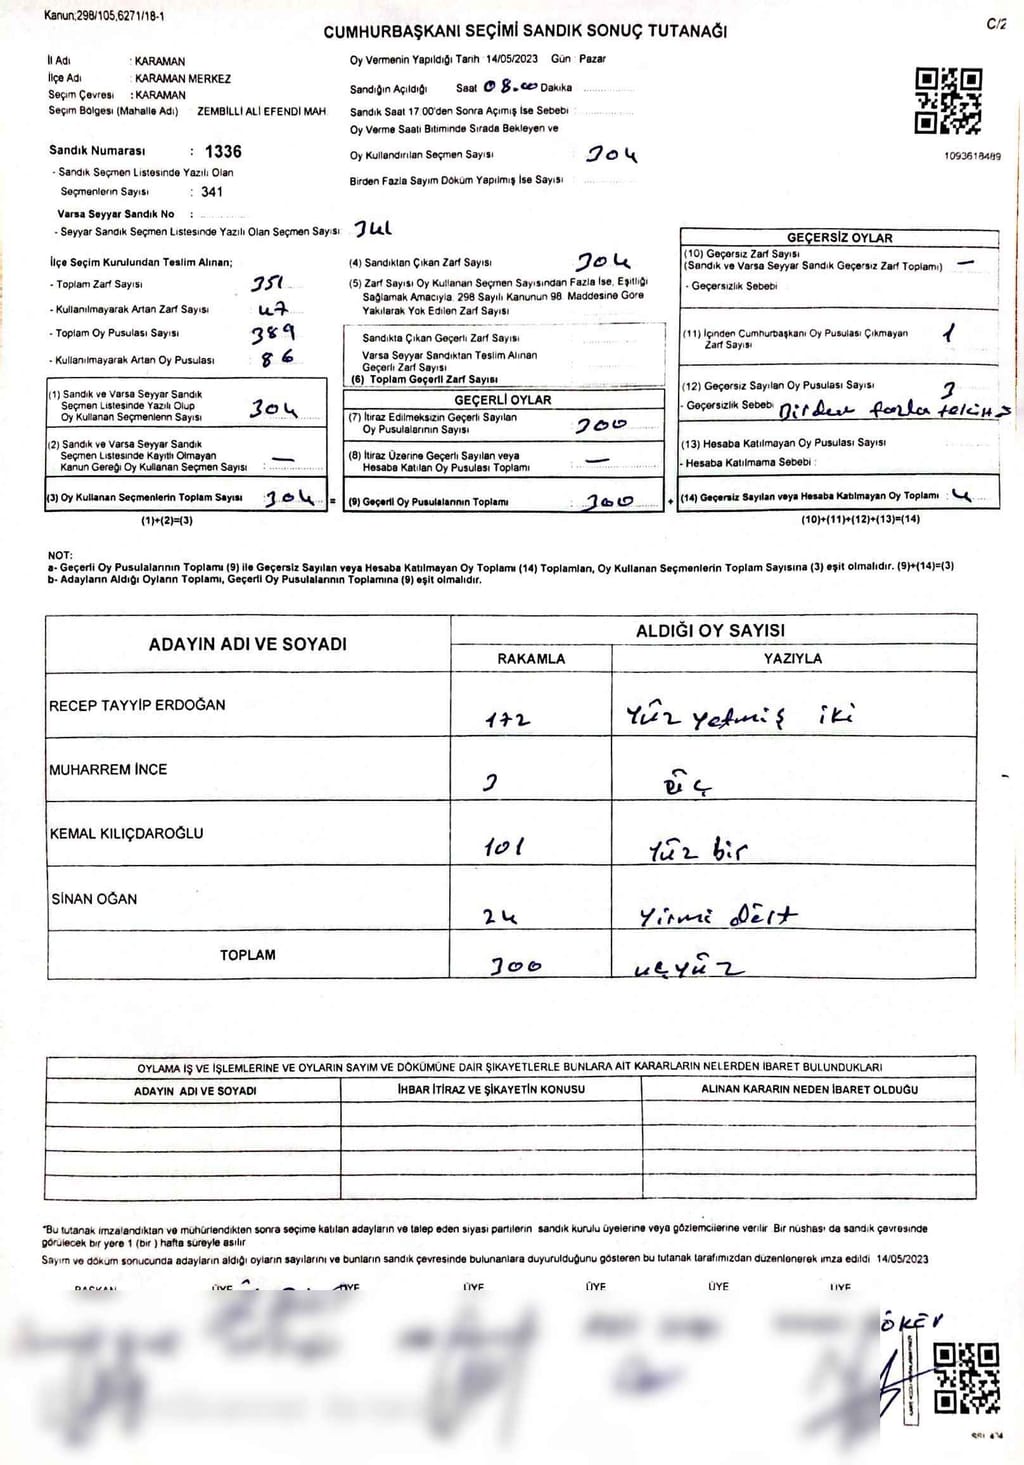 Kanun,298/105,6271/18-1
C/2
CUMHURBAŞKANI SEÇİMİ SANDIK SONUÇ TUTANAĞI
İl Adı : KARAMAN
İlçe Adı : KARAMAN MERKEZ
Seçim Çevresi : KARAMAN
Seçim Bölgesi (Mahalle Adı) ZEMBİLLİ ALİ EFENDİ MAH
Sandık Numarası : 1336
- Sandık Seçmen Listesinde Yazılı Olan
Seçmenlerin Sayısı : 341
Varsa Seyyar Sandık No :
- Seyyar Sandık Seçmen Listesinde Yazılı Olan Seçmen Sayısı 341
Oy Vermenin Yapıldığı Tarih 14/05/2023 Gün : Pazar
Sandığın Açıldığı Saat 08.00 Dakika
Sandık Saat 17.00'den Sonra Açımış İse Sebebi :
Oy Verme Saati Bitiminde Sırada Bekleyen ve
Oy Kullandırılan Seçmen Sayısı : 304
Birden Fazla Sayım Döküm Yapılmış İse Sayısı :
1093618489
İlçe Seçim Kurulundan Teslim Alınan;
- Toplam Zarf Sayısı : 351
- Kullanılmayarak Artan Zarf Sayısı : 47
- Toplam Oy Pusulası Sayısı : 389
- Kullanılmayarak Artan Oy Pusulası : 86
(1) Sandık ve Varsa Seyyar Sandık
Seçmen Listesinde Yazılı Olup
Oy Kullanan Seçmenlerin Sayısı : 304
(2) Sandık ve Varsa Seyyar Sandık
Seçmen Listesinde Kayıtlı Olmayan
Kanun Gereği Oy Kullanan Seçmen Sayısı : —
(3) Oy Kullanan Seçmenlerin Toplam Sayısı : 304 =
(1)+(2)=(3)
(4) Sandıktan Çıkan Zarf Sayısı : 304
(5) Zarf Sayısı Oy Kullanan Seçmen Sayısından Fazla İse, Eşitliği
Sağlamak Amacıyla 298 Sayılı Kanunun 98. Maddesine Göre
Yakılarak Yok Edilen Zarf Sayısı :
Sandıkta Çıkan Geçerli Zarf Sayısı :
Varsa Seyyar Sandıktan Teslim Alınan
Geçerli Zarf Sayısı :
(6) Toplam Geçerli Zarf Sayısı :
GEÇERLİ OYLAR
(7) İtiraz Edilmeksizin Geçerli Sayılan
Oy Pusulalarının Sayısı : 300
(8) İtiraz Üzerine Geçerli Sayılan veya
Hesaba Katılan Oy Pusulası Toplamı : —
(9) Geçerli Oy Pusulalarının Toplamı : 300 +
GEÇERSİZ OYLAR
(10) Geçersiz Zarf Sayısı
(Sandık ve Varsa Seyyar Sandık Geçersiz Zarf Toplamı) : —
- Geçersizlik Sebebi :
(11) İçinden Cumhurbaşkanı Oy Pusulası Çıkmayan
Zarf Sayısı : 1
(12) Geçersiz Sayılan Oy Pusulası Sayısı : 3
- Geçersizlik Sebebi Birden fazla
(13) Hesaba Katılmayan Oy Pusulası Sayısı :
- Hesaba Katılmama Sebebi :
(14) Geçersiz Sayılan veya Hesaba Katılmayan Oy Toplamı : 4
(10)+(11)+(12)+(13)=(14)
NOT:
a- Geçerli Oy Pusulalarının Toplamı (9) ile Geçersiz Sayılan veya Hesaba Katılmayan Oy Toplamı (14) Toplamları, Oy Kullanan Seçmenlerin Toplam Sayısına (3) eşit olmalıdır. (9)+(14)=(3)
b- Adayların Aldığı Oyların Toplamı, Geçerli Oy Pusulalarının Toplamına (9) eşit olmalıdır.
ADAYIN ADI VE SOYADI
ALDIĞI OY SAYISI
RAKAMLA YAZIYLA
RECEP TAYYİP ERDOĞAN 172 Yüz yetmiş iki
MUHARREM İNCE 3 üç
KEMAL KILIÇDAROĞLU 101 Yüz bir
SİNAN OĞAN 24 Yirmi dört
TOPLAM 300 üçyüz
OYLAMA İŞ VE İŞLEMLERİNE VE OYLARIN SAYIM VE DÖKÜMÜNE DAİR ŞİKAYETLERLE BUNLARA AİT KARARLARIN NELERDEN İBARET BULUNDUKLARI
ADAYIN ADI VE SOYADI İHBAR İTİRAZ VE ŞİKAYETİN KONUSU ALINAN KARARIN NEDEN İBARET OLDUĞU
"Bu tutanak imzalandıktan ve mühürlendikten sonra seçime katılan adayların ve talep eden siyasi partilerin sandık kurulu üyelerine veya gözlemcilerine verilir. Bir nüshası da sandık çevresinde
görülecek bir yere 1 (bir) hafta süreyle asılır
Sayım ve döküm sonucunda adayların aldığı oyların sayılarını ve bunların sandık çevresinde bulunanlara duyurulduğunu gösteren bu tutanak tarafımızdan düzenlenerek imza edildi 14/05/2023
BAŞKAN ÜYE ÜYE ÜYE ÜYE ÜYE ÜYE